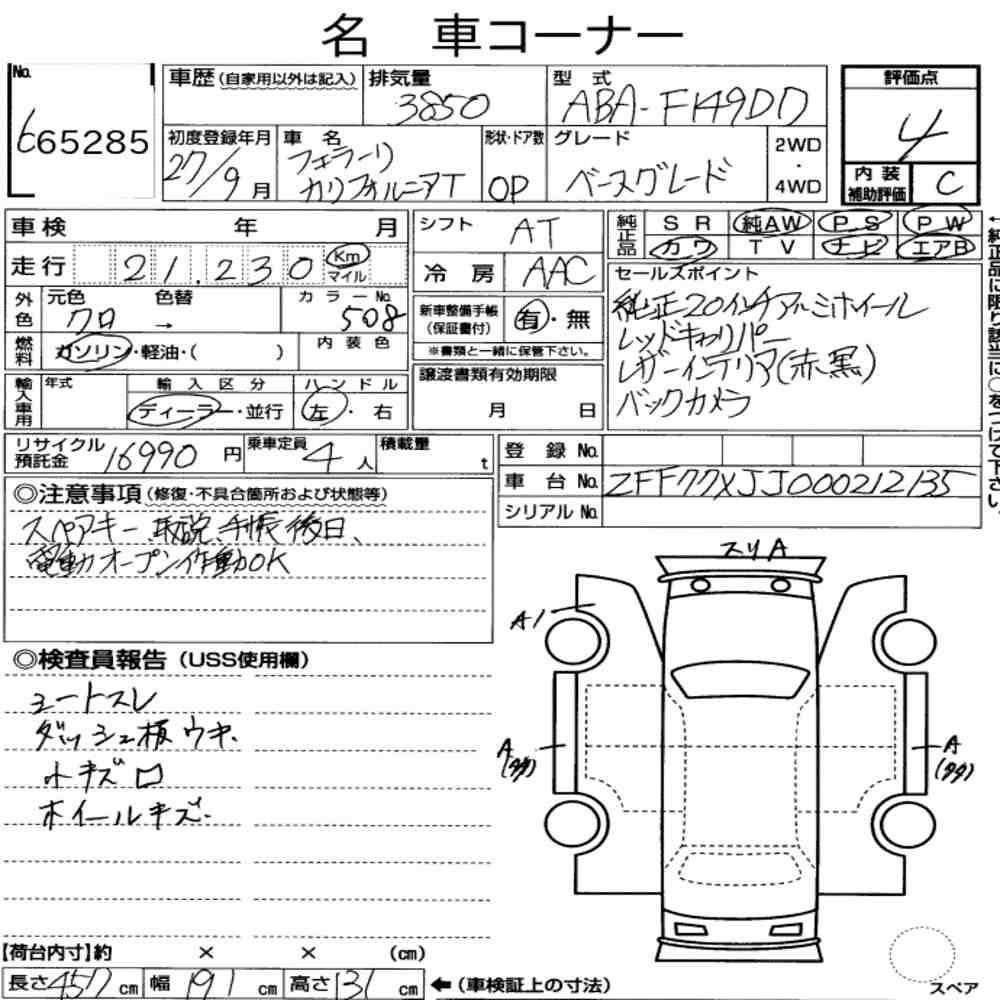 名 車コーナー
No. 665285
車歴(自家用以外は記入)
排気量 3850
型式 ABA-F149DD
評価点 4
初度登録年月 27/9月
車名 フェラーリ カリフォルニアT
形状・ドア数 OP
グレード ベースグレード
2WD・4WD
内装補助評価 C
車検 年 月
シフト AT
純正品 SR 純AW PS PW
カワ TV ナビ エアB
走行 21,230 Km マイル
冷房 AAC
←純正品に限り該当に○をつけて下さい。
外色 元色 クロ → 色替 カラーNo. 508
新車整備手帳(保証書付) 有・無
※書類と一緒に保管下さい。
セールスポイント
純正20インチアルミホイール
レッドキャリパー
レザーインテリア(赤、黒)
バックカメラ
燃料 ガソリン・軽油・( ) 内装色
輸入車用 年式 輸入区分 ディーラー・並行 ハンドル 左・右
譲渡書類有効期限 月 日
リサイクル預託金 16990円 乗車定員 4人 積載量 t
登録No.
車台No. ZFF77XJJ000212135
シリアルNo.
◎注意事項(修復・不具合箇所および状態等)
スペアキー、取説、手帳後日、
電動オープン作動OK
スリA
A1
A
(タタ)
A
(タタ)
◎検査員報告(USS使用欄)
シートスレ
ダッシュ板ウキ.
小キズ ロ
ホイールキズ.
【荷台内寸】約 × × (cm)
長さ 457cm 幅 191cm 高さ 131cm ←(車検証上の寸法)
スペア